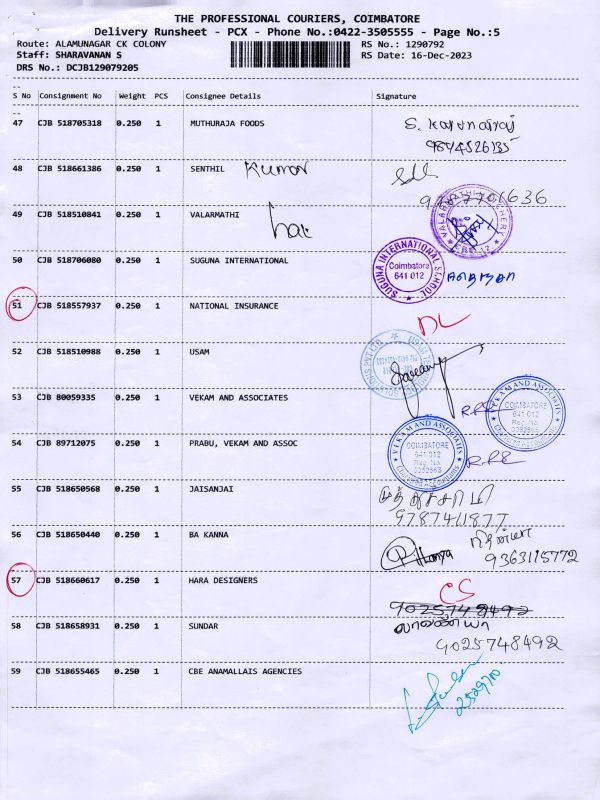 THE PROFESSIONAL COURIERS, COIMBATORE
Delivery Runsheet - PCX - Phone No.:0422-3505555 - Page No.:5
Route: ALAMUNAGAR CK COLONY RS No.: 1290792
Staff: SHARAVANAN S RS Date: 16-Dec-2023
DRS No.: DCJB129079205
S No Consignment No Weight PCS Consignee Details Signature
47 CJB 518705318 0.250 1 MUTHURAJA FOODS
48 CJB 518661386 0.250 1 SENTHIL Kumar
9787701636
49 CJB 518510841 0.250 1 VALARMATHI
50 CJB 518706080 0.250 1 SUGUNA INTERNATIONAL
SUGUNA INTERNATIONAL SCHOOL
Coimbatore
641 012
51 CJB 518557937 0.250 1 NATIONAL INSURANCE
DL
52 CJB 518510988 0.250 1 USAM
53 CJB 80059335 0.250 1 VEKAM AND ASSOCIATES
VEKAM AND ASSOCIATES
COIMBATORE
641 012
54 CJB 89712075 0.250 1 PRABU, VEKAM AND ASSOC
VEKAM AND ASSOCIATES
COIMBATORE
641 012
Chartered Accountants
55 CJB 518650568 0.250 1 JAISANJAI
முத்துசாமி
9787411877
56 CJB 518650440 0.250 1 BA KANNA
9363115772
57 CJB 518660617 0.250 1 HARA DESIGNERS
CS
9025748492
58 CJB 518658931 0.250 1 SUNDAR
லாவண்யா
9025748492
59 CJB 518655465 0.250 1 CBE ANAMALLAIS AGENCIES